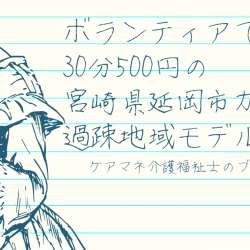 ボランティアで
30分500円の
宮崎県延岡市方
過疎地域モデル
ケアマネ介護福祉士のブ